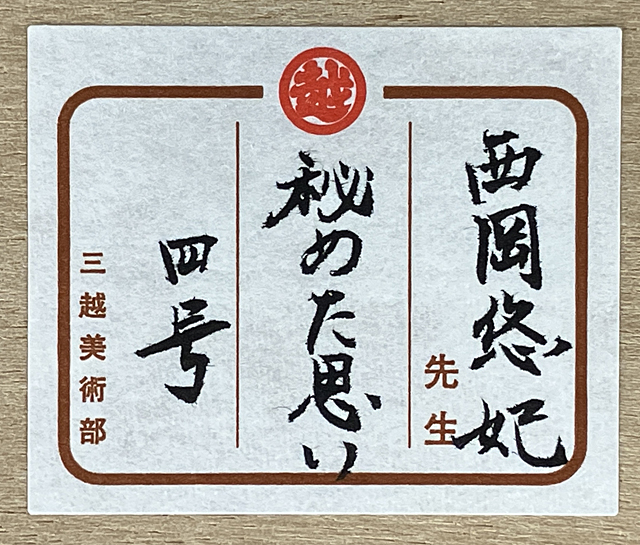 越
西岡悠妃
先生
秘めた思い
四号
三越美術部